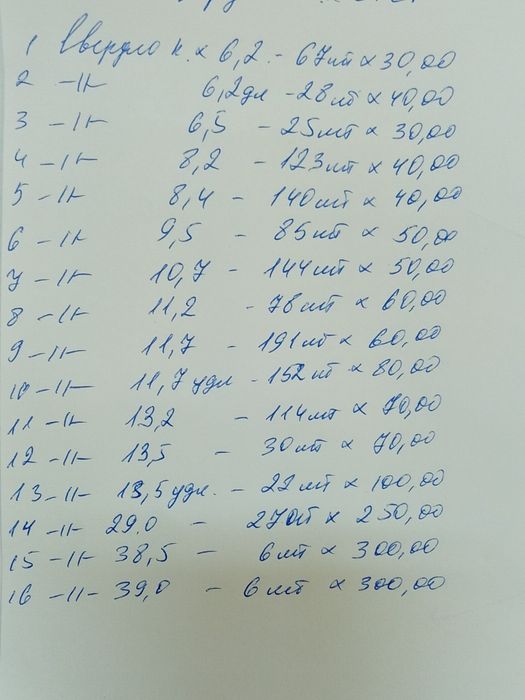 1 Сверло к. х 6,2. - 67шт х 30,00
2 -11- 6,2дл - 28шт х 40,00
3 -11- 6,5 - 25шт х 30,00
4 -11- 8,2 - 123шт х 40,00
5 -11- 8,4 - 140шт х 40,00
6 -11- 9,5 - 85шт х 50,00
7 -11- 10,7 - 144шт х 50,00
8 -11- 11,2 - 78шт х 60,00
9 -11- 11,7 - 191шт х 60,00
10 -11- 11,7 удл - 152шт х 80,00
11 -11- 13,2 - 114шт х 70,00
12 -11- 13,5 30шт х 70,00
13 -11- 13,5 удл. - 22шт х 100,00
14 -11- 29.0 - 27шт х 250,00
15 -11- 38,5 - 6шт х 300,00
16 -11- 39,0 - 6шт х 300,00